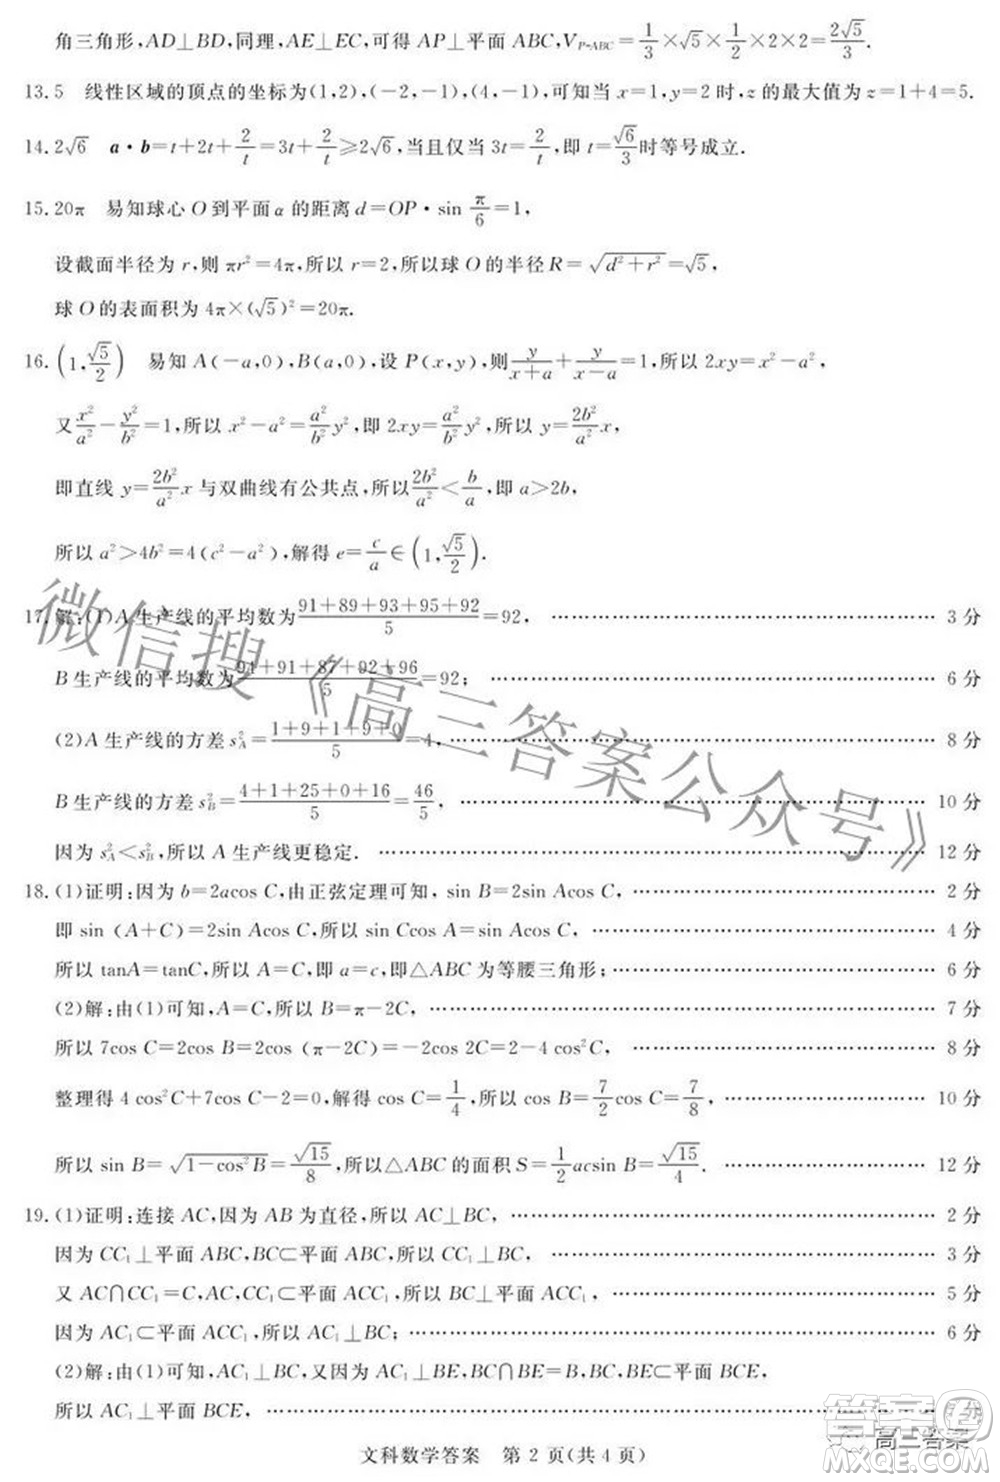 角三角形,AD⊥BD,同理,AE⊥EC,可得 AP⊥平面 ABC,V_{P-ABC}=1/3×√5×1/2×2×2=2√5/3.
13.5 线性区域的顶点的坐标为(1,2),(-2,-1),(4,-1),可知当 x=1,y=2 时,z 的最大值为 z=1+4=5.
14.2√6 a·b=t+2t+2/t=3t+2/t≥2√6,当且仅当 3t=2/t,即 t=√6/3时等号成立.
15.20π 易知球心 O 到平面 α 的距离 d=OP·sin π/6=1,
设截面半径为 r,则 πr²=4π,所以 r=2,所以球 O 的半径 R=√(d²+r²)=√5,
球 O 的表面积为 4π×(√5)²=20π.
16.(1,√5/2) 易知 A(-a,0),B(a,0),设 P(x,y),则y/(x+a)+y/(x-a)=1,所以 2xy=x²-a²,
又x²/a²-y²/b²=1,所以 x²-a²=a²/b² y²,即 2xy=a²/b² y²,所以 y=2b²/a² x,
即直线 y=2b²/a² x 与双曲线有公共点,所以2b²/a²<b/a,即 a>2b,
所以 a²>4b²=4(c²-a²),解得 e=c/a∈(1,√5/2).
17.解:(1)A 生产线的平均数为(91+89+93+95+92)/5=92, …… 3 分
B 生产线的平均数为(94+91+87+92+96)/5=92; …… 6 分
(2)A 生产线的方差 s_A²=(1+9+1+9+0)/5=4, …… 8 分
B 生产线的方差 s_B²=(4+1+25+0+16)/5=46/5, …… 10 分
因为 s_A²<s_B²,所以 A 生产线更稳定. …… 12 分
18.(1)证明:因为 b=2acos C,由正弦定理可知,sin B=2sin Acos C, …… 2 分
即 sin (A+C)=2sin Acos C,所以 sin Ccos A=sin Acos C, …… 4 分
所以 tanA=tanC,所以 A=C,即 a=c,即△ABC 为等腰三角形; …… 6 分
(2)解:由(1)可知,A=C,所以 B=π-2C, …… 7 分
所以 7cos C=2cos B=2cos (π-2C)=-2cos 2C=2-4 cos²C, …… 8 分
整理得 4 cos²C+7cos C-2=0,解得 cos C=1/4,所以 cos B=7/2 cos C=7/8, …… 10 分
所以 sin B=√(1-cos²B)=√15/8,所以△ABC 的面积 S=1/2 acsin B=√15/4. …… 12 分
19.(1)证明:连接 AC,因为 AB 为直径,所以 AC⊥BC, …… 2 分
因为 CC₁⊥平面 ABC,BC⊂平面 ABC,所以 CC₁⊥BC, …… 3 分
又 AC∩CC₁=C,AC,CC₁⊂平面 ACC₁,所以 BC⊥平面 ACC₁, …… 5 分
因为 AC₁⊂平面 ACC₁,所以 AC₁⊥BC; …… 6 分
(2)解:由(1)可知,AC₁⊥BC,又因为 AC₁⊥BE,BC∩BE=B,BC,BE⊂平面 BCE,
所以 AC₁⊥平面 BCE, ……
文科数学答案 第 2 页(共 4 页)
微信搜《高三答案公众号》
高三答案
答案圈
MXQE.COM